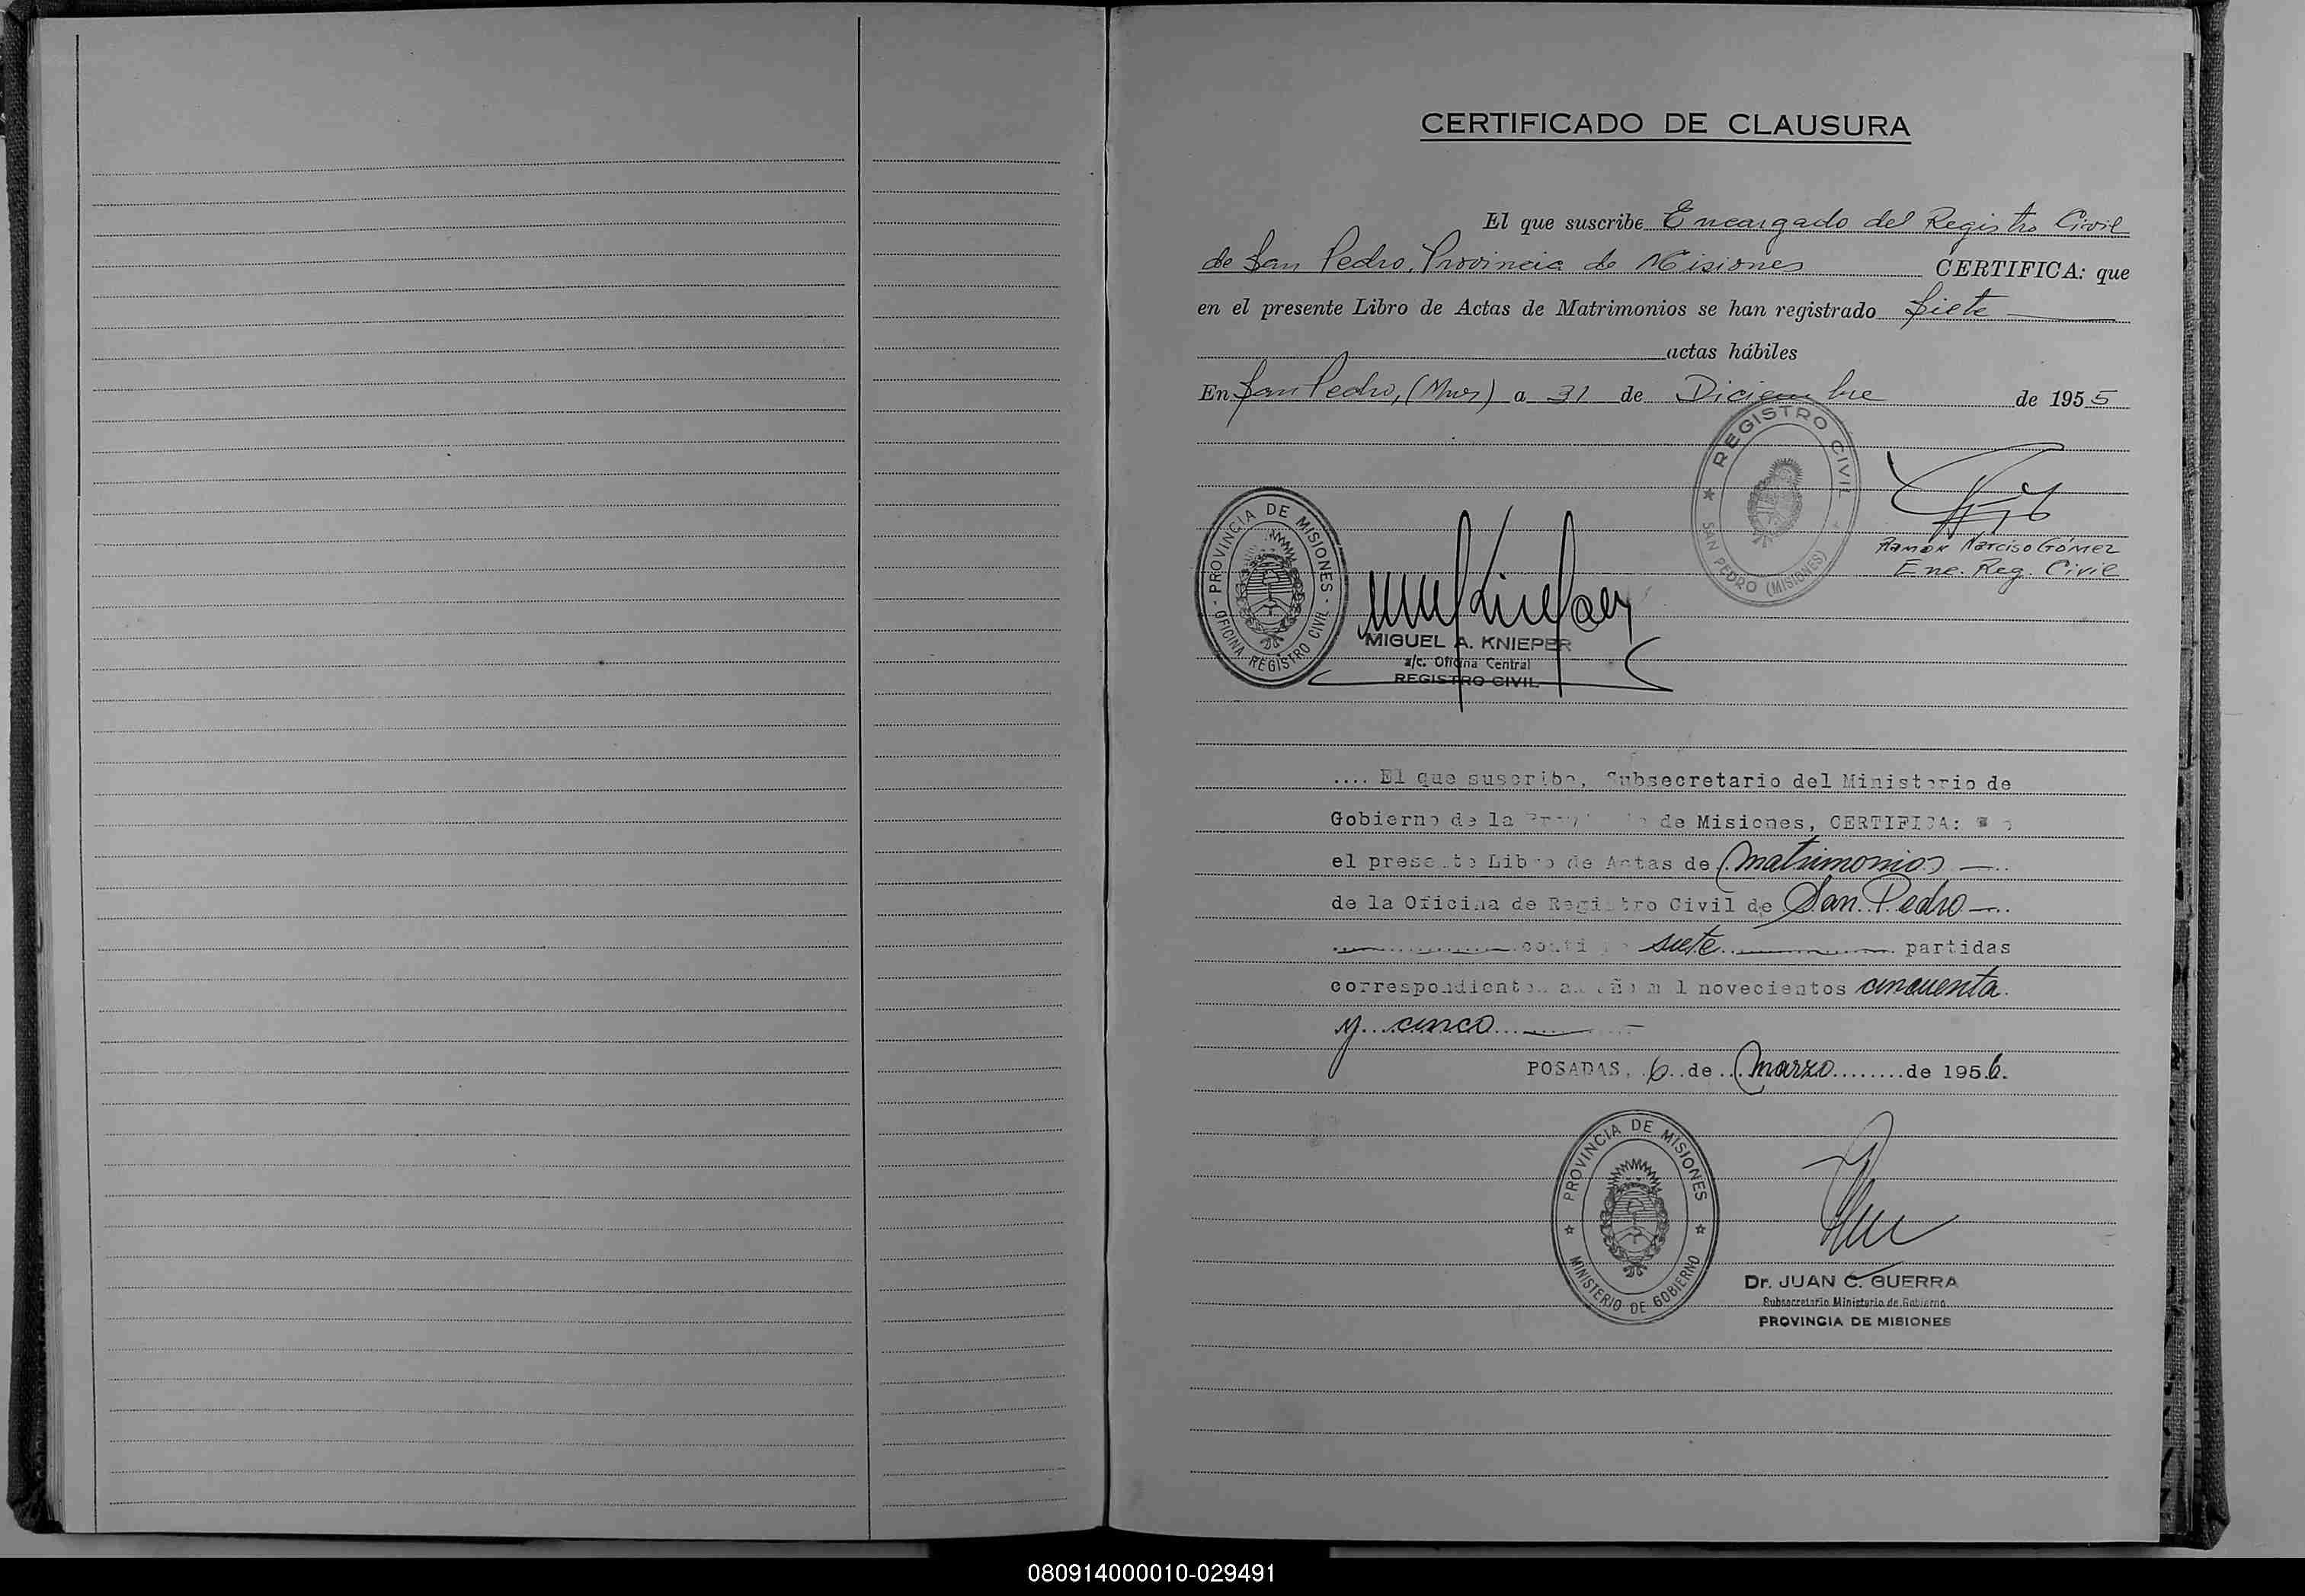 CERTIFICADO DE CLAUSURA
El que suscribe Encargado del Registro Civil
de San Pedro, Provincia de Misiones CERTIFICA: que
en el presente Libro de Actas de Matrimonios se han registrado Siete
actas hábiles
En San Pedro, (Mnes) a 31 de Diciembre de 1955
REGISTRO CIVIL
SAN PEDRO (MISIONES)
Ramón Narciso Gómez
Enc. Reg. Civil
PROVINCIA DE MISIONES
OFICINA REGISTRO CIVIL
MIGUEL A. KNIEPER
a/c. Oficina Central
REGISTRO CIVIL
.... El que suscribe, Subsecretario del Ministerio de
Gobierno de la Provincia de Misiones, CERTIFICA:
el presente Libro de Actas de Matrimonios
de la Oficina de Registro Civil de San Pedro
siete partidas
correspondientes novecientos cincuenta
y cinco
POSADAS, 6 de marzo de 1956.
PROVINCIA DE MISIONES
MINISTERIO DE GOBIERNO
Dr. JUAN C. GUERRA
Subsecretario Ministerio de Gobierno
PROVINCIA DE MISIONES
080914000010-029491